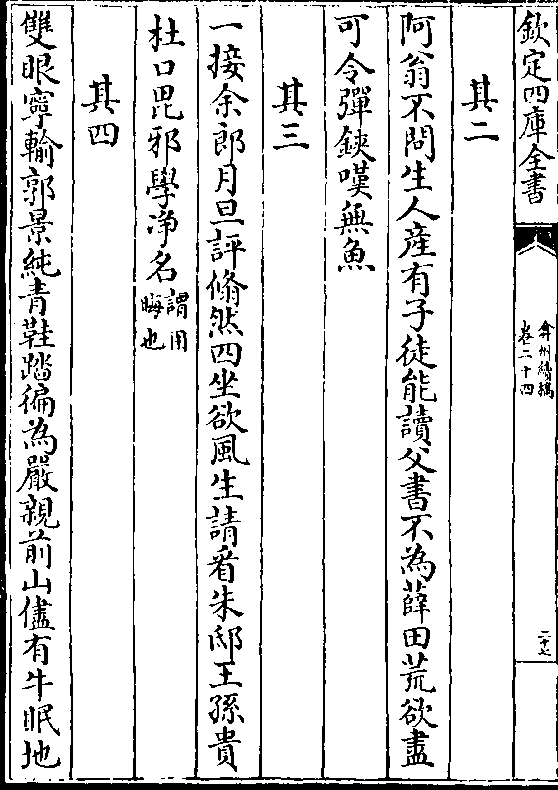 欽定四庫全書
弇州續稿
卷二十四
二十七
其二
阿翁不問生人産有子徒能讀父書不為薛田荒欲盡
可令彈鋏嘆無魚
其三
一接余郎月旦評翛然四坐欲風生請看朱邸王孫貴
杜口毘邪學淨名謂用
晦也
其四
雙眼寧輸郭景純青鞋踏徧為嚴親前山儘有牛眠地